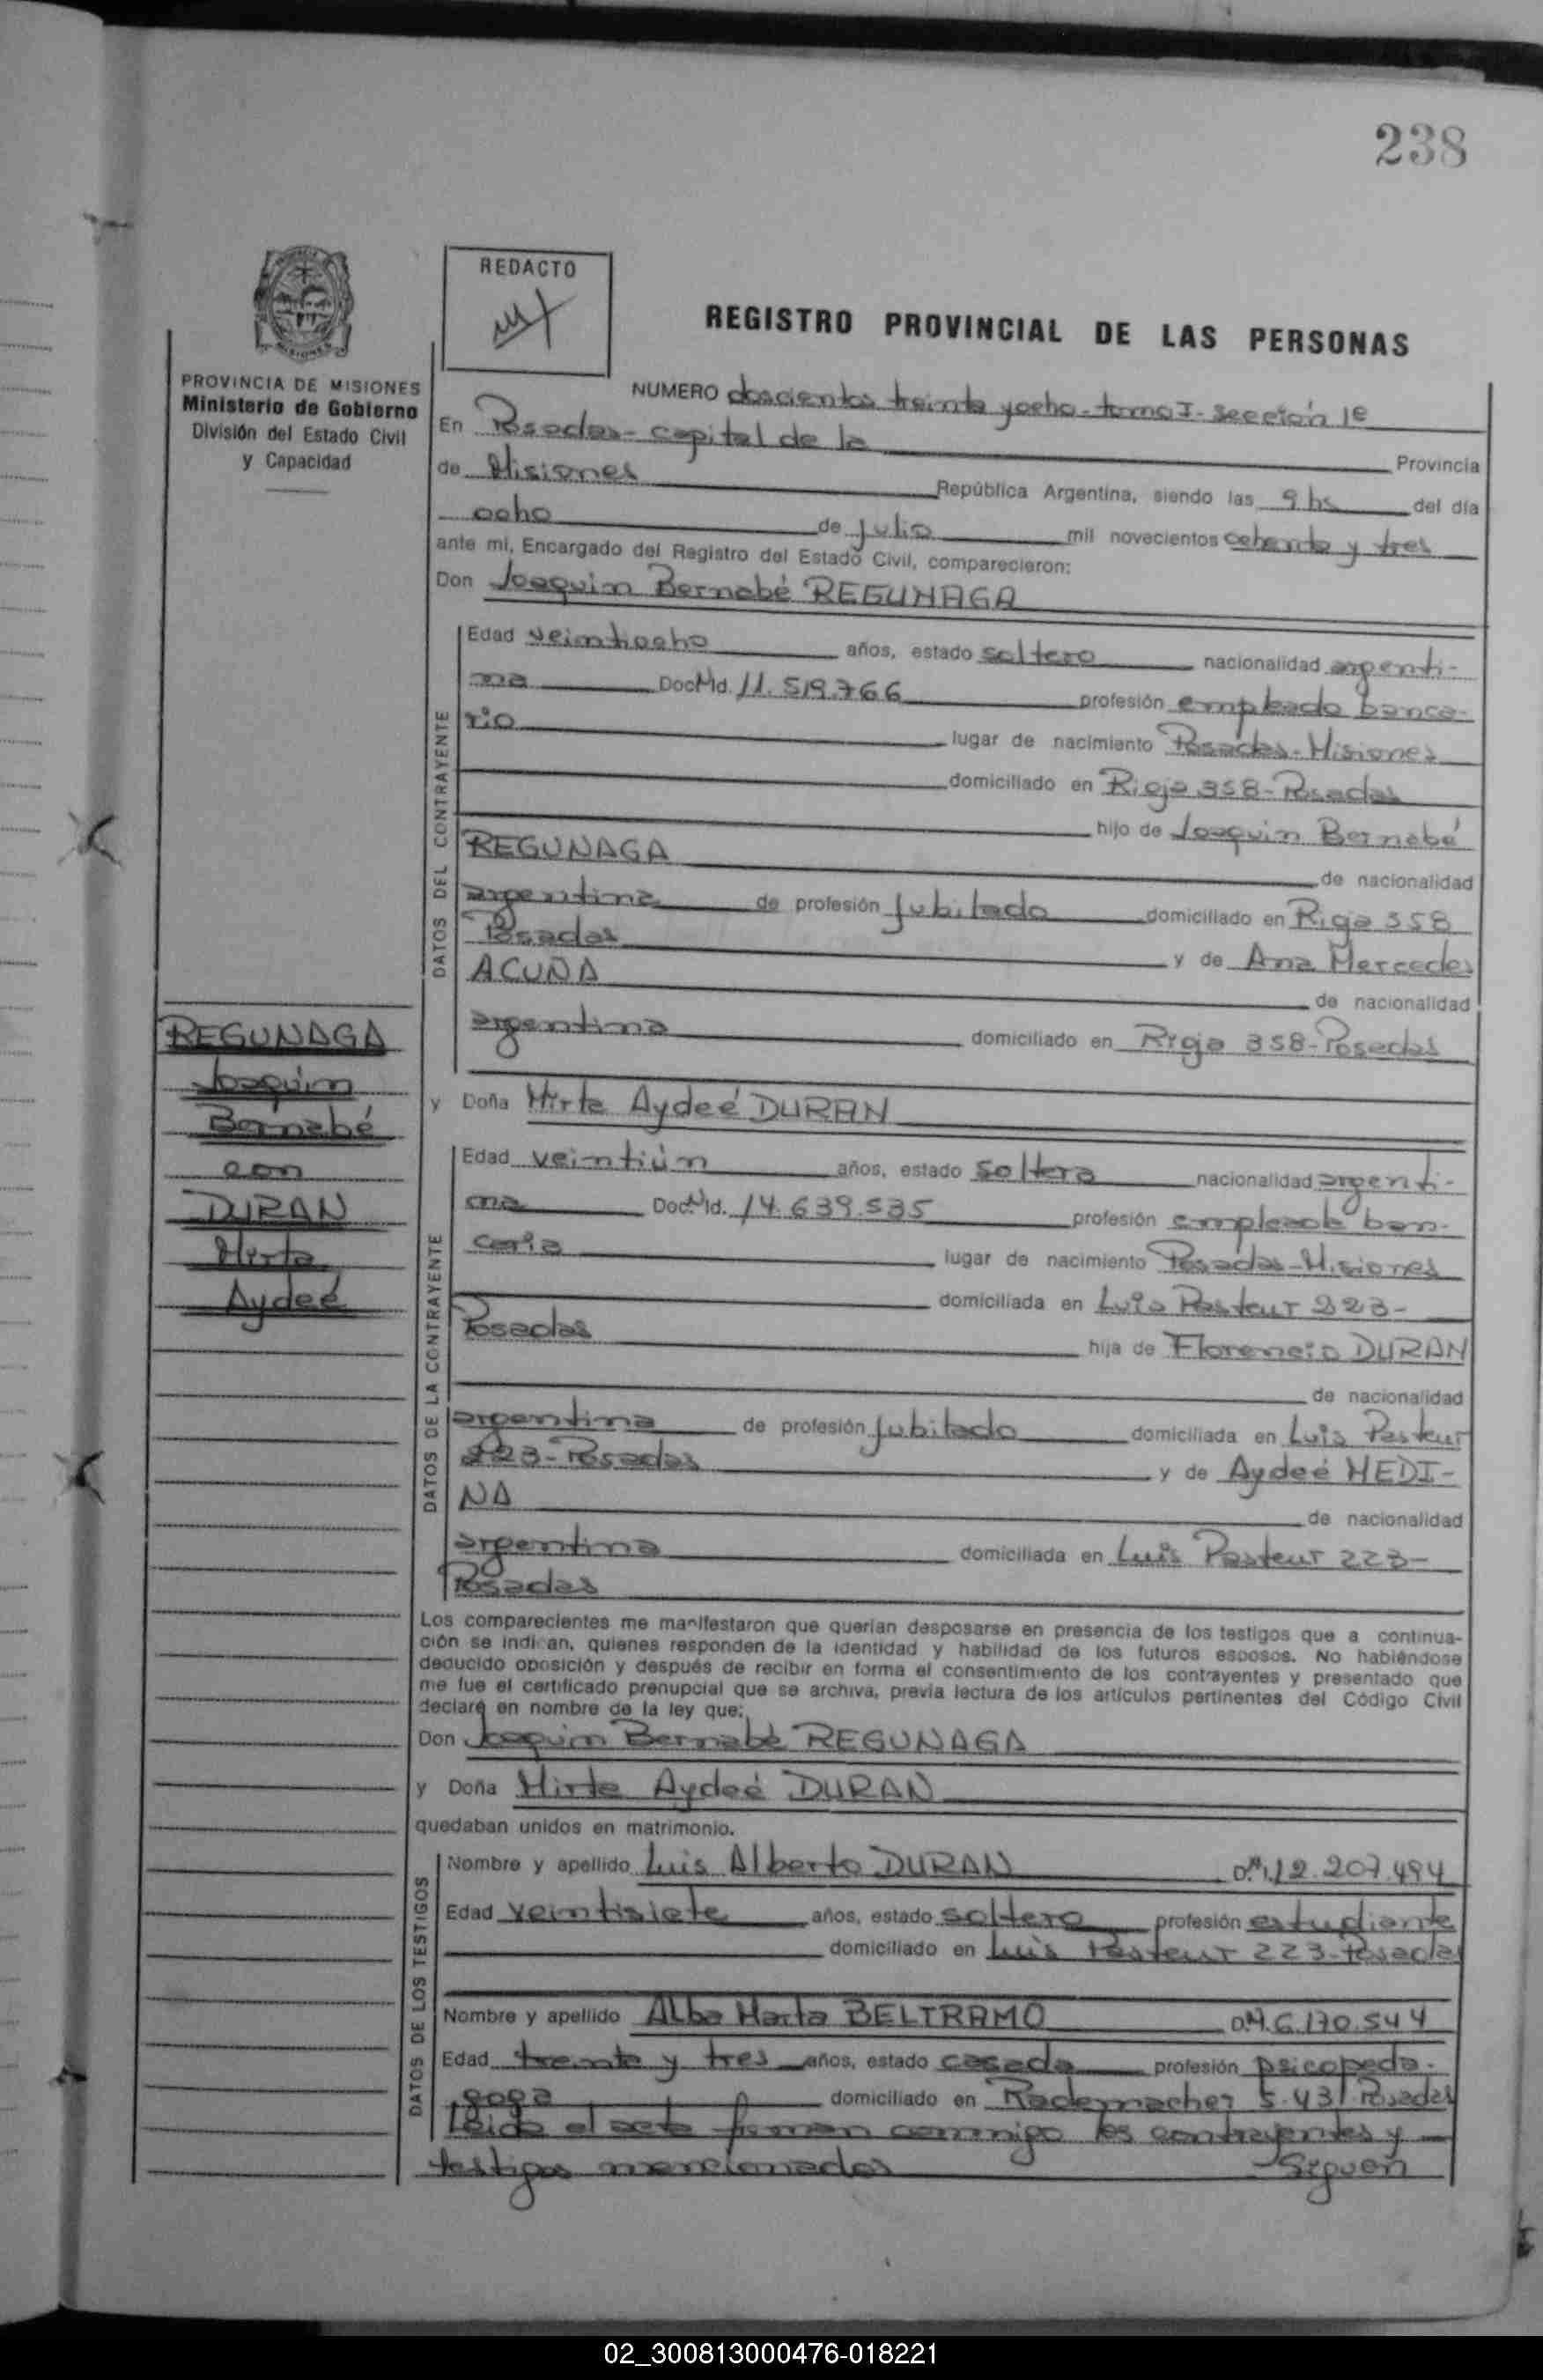 238
REDACTO
REGISTRO PROVINCIAL DE LAS PERSONAS
PROVINCIA DE MISIONES
Ministerio de Gobierno
División del Estado Civil
y Capacidad
NUMERO doscientos treinta y ocho - tomo I - sección 1ª
En Posadas - capital de la Provincia
de Misiones República Argentina, siendo las 9 hs del día
ocho de julio mil novecientos ochenta y tres
ante mi, Encargado del Registro del Estado Civil, comparecieron:
Don Joaquin Bernabé REGUNAGA
DATOS DEL CONTRAYENTE
Edad veintiocho años, estado soltero nacionalidad argenti-
na Doc. Nd. 11.519.766 profesión empleado banca-
rio lugar de nacimiento Posadas - Misiones
domiciliado en Rioja 358 - Posadas
hijo de Joaquin Bernabé
REGUNAGA de nacionalidad
argentina de profesión Jubilado domiciliado en Rioja 358
Posadas y de Ana Mercedes
ACUÑA de nacionalidad
argentina domiciliado en Rioja 358 - Posadas
REGUNAGA
Joaquin
Bernabé
con
DURAN
Mirta
Aydeé
y Doña Mirta Aydeé DURAN
DATOS DE LA CONTRAYENTE
Edad veintiún años, estado soltera nacionalidad argenti-
na Doc. Nd. 14.639.535 profesión empleada ban-
caria lugar de nacimiento Posadas - Misiones
domiciliada en Luis Pasteur 223 -
Posadas hija de Florencio DURAN
de nacionalidad
argentina de profesión Jubilado domiciliada en Luis Pasteur
223 - Posadas y de Aydeé MEDI-
NA de nacionalidad
argentina domiciliada en Luis Pasteur 223 -
Posadas
Los comparecientes me manifestaron que querían desposarse en presencia de los testigos que a continua-
ción se indican, quienes responden de la identidad y habilidad de los futuros esposos. No habiéndose
deducido oposición y después de recibir en forma el consentimiento de los contrayentes y presentado que
me fue el certificado prenupcial que se archiva, previa lectura de los artículos pertinentes del Código Civil
declaré en nombre de la ley que:
Don Joaquin Bernabé REGUNAGA
y Doña Mirta Aydeé DURAN
quedaban unidos en matrimonio.
DATOS DE LOS TESTIGOS
Nombre y apellido Luis Alberto DURAN D.N.I. 12.207.494
Edad veintisiete años, estado soltero profesión estudiante
domiciliado en Luis Pasteur 223 - Posadas
Nombre y apellido Alba Marta BELTRAMO D.N. 6.170.544
Edad treinta y tres años, estado casada profesión psicopeda-
goga domiciliado en Rademacher 5.431 - Posadas
Leida el acta firman conmigo los contrayentes y
testigos mencionados Siguen
02_300813000476-018221